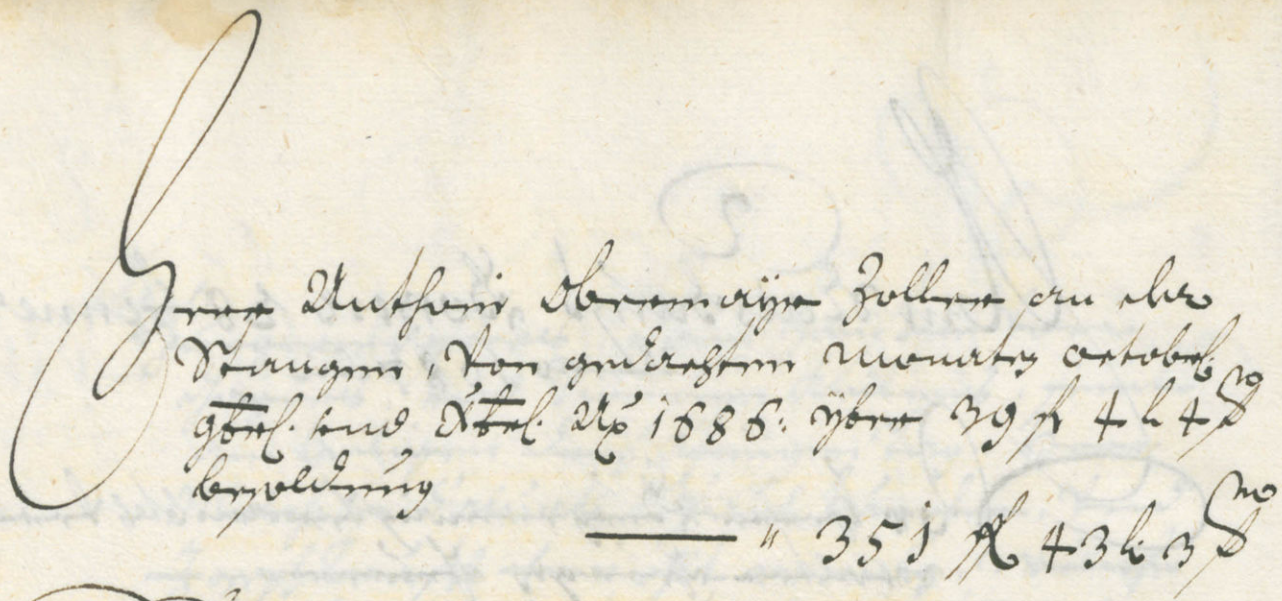 Herr Anthoni Obermayr Zoller an der
Stangen, von gedachten Monaten octobr.
9br. und Xbr. Ao 1686: yber 39 f 4 k 4
besoldung
" 351 f 43 k 3